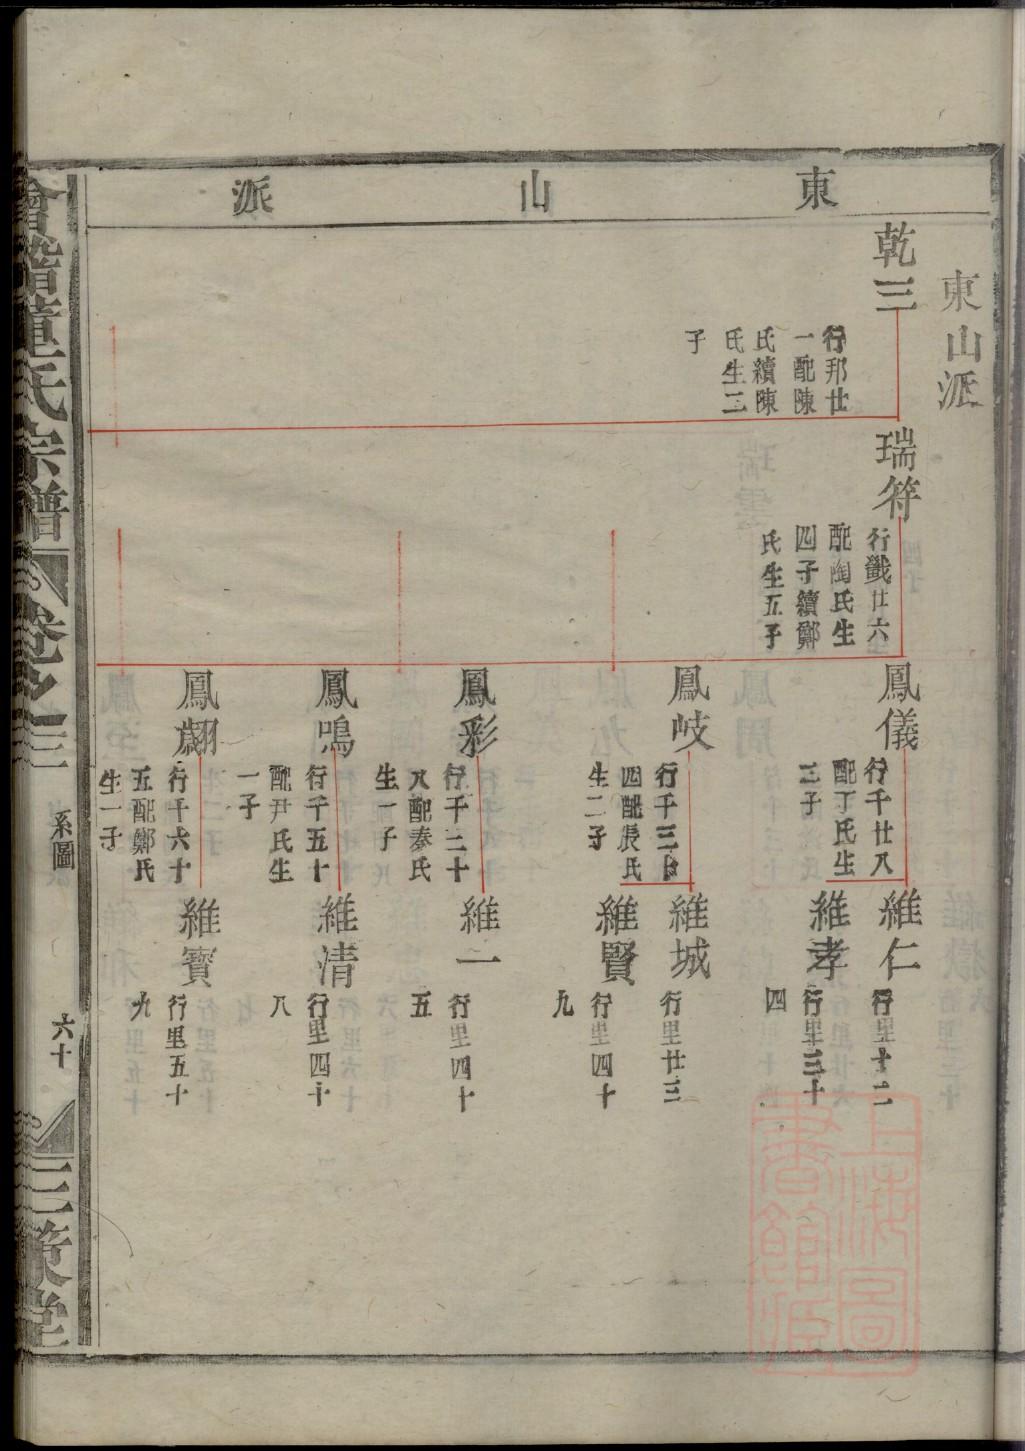 東山派
東山派
乾三
行邦廿
一配陳
氏續陳
氏生二
子
瑞符
行戩廿六
配陶氏生
四子續鄭
氏生五子
鳳儀
行千廿八
配丁氏生
三子
鳳岐
行千三十
四配張氏
生二子
鳳彩
行千三十
八配秦氏
生一子
鳳鳴
行千五十
配尹氏生
一子
鳳翽
行千六十
五配鄭氏
生一子
維仁
行里十二
維孝
行里三十
四
維城
行里廿三
維賢
行里四十
九
維一
行里四十
五
維清
行里四十
八
維寶
行里五十
九
會稽董氏宗譜
卷之三
系圖
六十
三策堂
上海圖書館藏